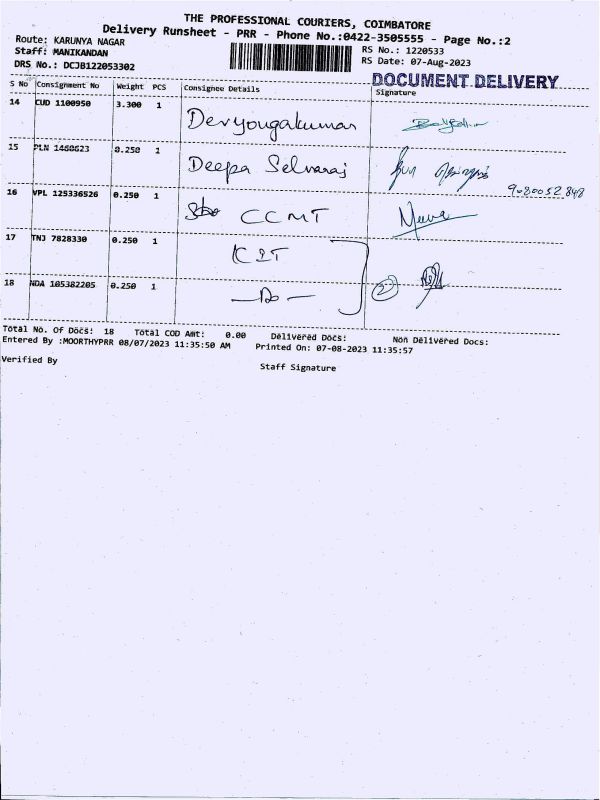 THE PROFESSIONAL COURIERS, COIMBATORE
Delivery Runsheet - PRR - Phone No.:0422-3505555 - Page No.:2
Route: KARUNYA NAGAR
RS No.: 1220533
Staff: MANIKANDAN
RS Date: 07-Aug-2023
DRS No.: DCJB122053302
DOCUMENT DELIVERY
S No Consignment No Weight PCS Consignee Details Signature
14 CUD 1100950 3.300 1 Devyougakumar
15 PLN 1460623 0.250 1 Deepa Selvaraj
9080052848
16 VPL 125336526 0.250 1 CCMT
17 TNJ 7828330 0.250 1 KIT
18 NDA 105382205 0.250 1 — Do — 2
Total No. Of Docs: 18 Total COD Amt: 0.00 Delivered Docs: Non Delivered Docs:
Entered By :MOORTHYPRR 08/07/2023 11:35:50 AM Printed On: 07-08-2023 11:35:57
Verified By
Staff Signature